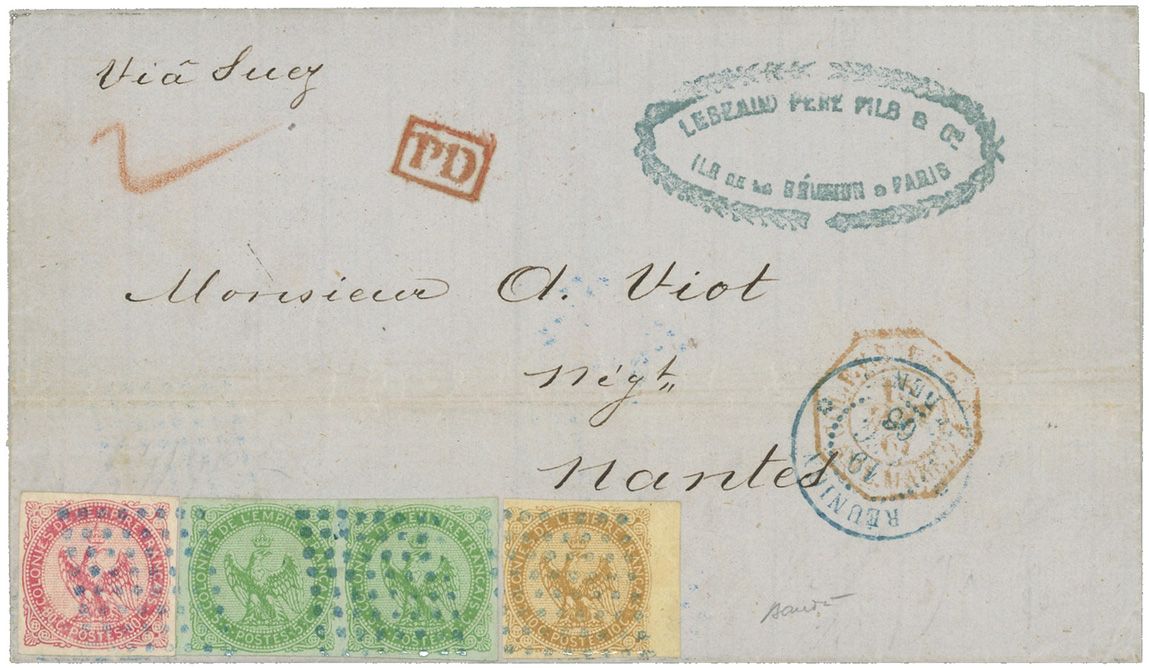 Viâ Suez
PD
LEGRAND PERE FILS & Cie
ILE DE LA RÉUNION & PARIS
Monsieur A. Viot
Négt.
Nantes
RÉUNION
19
68
COLONIES DE L'EMPIRE FRANÇAIS
80C. POSTES 80C.
COLONIES DE L'EMPIRE FRANÇAIS
5C. POSTES 5C.
COLONIES DE L'EMPIRE FRANÇAIS
5C. POSTES 5C.
COLONIES DE L'EMPIRE FRANÇAIS
10C. POSTES 10C.